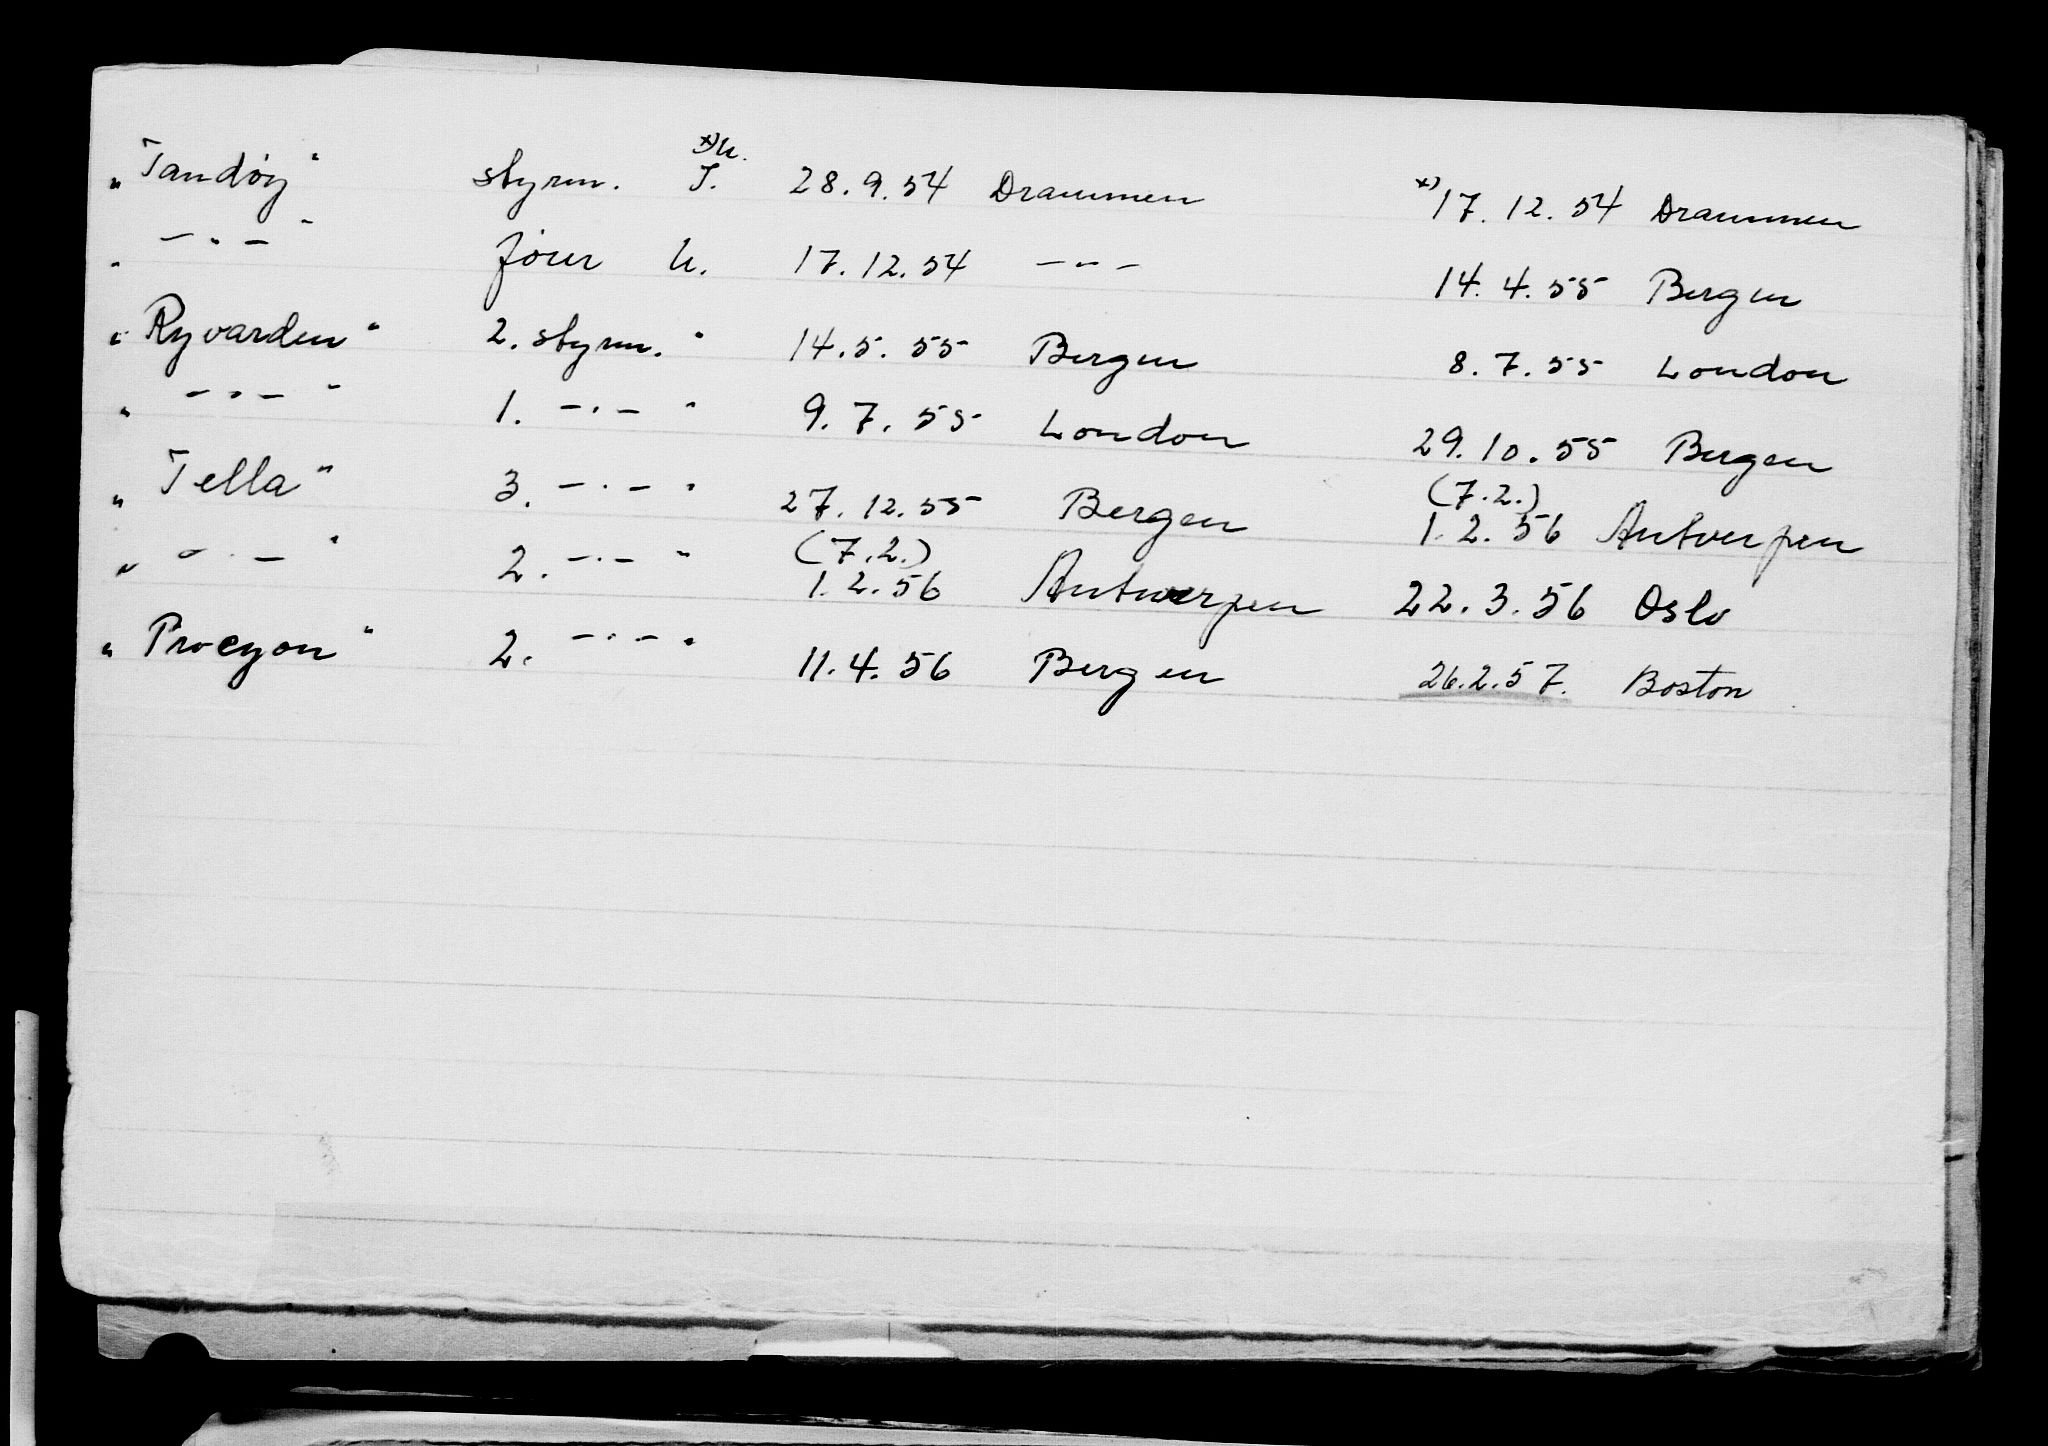 "Tandöy" styrm. *)U. I. 28.9.54 Drammen *) 17.12.54 Drammen
" -"- " jour U. 17.12.54 -"- 14.4.55 Bergen
"Ryvarden" 2. styrm. " 14.5.55 Bergen 8.7.55 London
" -"- " 1. -"- " 9.7.55 London 29.10.55 Bergen
"Tella" 3. -"- " 27.12.55 Bergen (7.2.) 1.2.56 Antwerpen
" -"- " 2. -"- " (7.2.) 1.2.56 Antwerpen 22.3.56 Oslo
"Procyon" 2. -"- " 11.4.56 Bergen 26.2.57. Boston